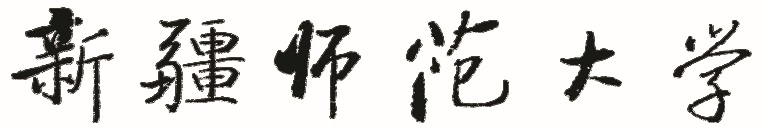 新疆师范大学